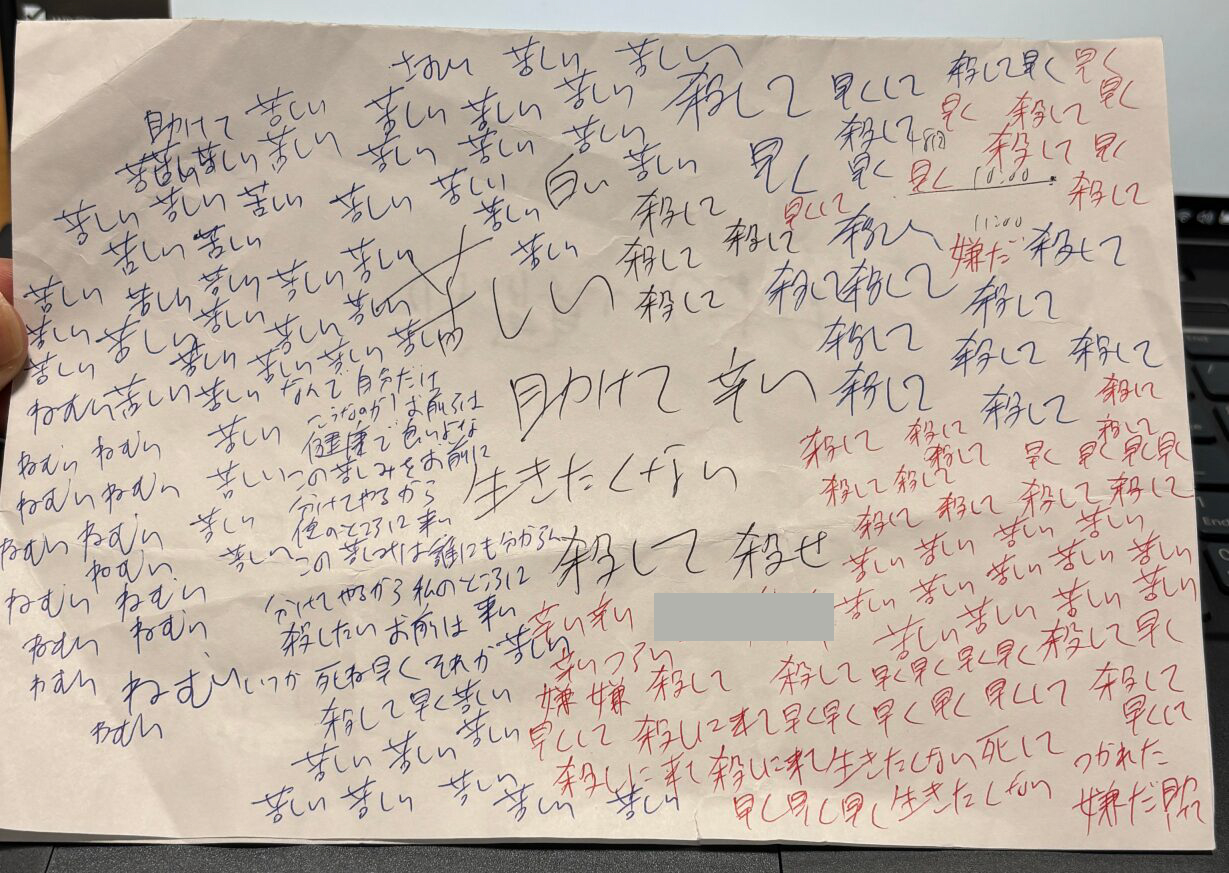 苦しい 苦しい
助けて 苦しい 苦しい 苦しい 苦しい 殺して 早くして 殺して早く 早く
苦しい 苦しい 苦しい 苦しい 苦しい 殺して 早く 殺して 早く
苦しい 苦しい 苦しい 苦しい 苦しい 白い 苦しい 早く 早く 早く 10:00 殺して 早く
苦しい 苦しい 苦しい 殺して 早くして 殺して
11:00
苦しい 苦しい 殺して 殺して 嫌だ 殺して
苦しい 苦しい 苦しい 苦しい 苦しい 殺して 殺して 殺して
苦しい 苦しい 苦しい 苦しい 殺して
苦しい 苦しい 苦しい 苦しい 苦しい 殺して 殺して
ねむい 苦しい 苦しい なんで自分だけ 助けて 辛い 殺して 殺して 殺して
こうなのか!お前らは
ねむい ねむい 苦しい 健康で良いよな 殺して 殺して 殺して
ねむい ねむい 苦しい この苦しみをお前に 生きたくない 殺して 早く 早く 早く
分けてやるから 殺して 殺して
ねむい ねむい 苦しい 俺のところに来い 殺して 殺して 殺して 殺して
ねむい 苦しい この苦しみは誰にも分からん 殺して 殺せ 苦しい 苦しい 苦しい 苦しい
ねむい ねむい 分けてやるから私のところに 苦しい 苦しい 苦しい 苦しい
ねむい ねむい 殺したいお前は来い 辛い 辛い 苦しい 苦しい 苦しい 苦しい
ねむい ねむい いつか死ね早くそれか苦しい 辛い つらい 苦しい 苦しい 殺して 早く
ねむい 殺して 早く 苦しい 嫌 嫌 殺して 殺して 早く 早く 早く 早く 殺して
苦しい 苦しい 苦しい 早くして 殺しに来て 早く 早く 早く 早く 早くして 早くして
苦しい 苦しい 苦しい 苦しい 苦しい 殺しに来て 殺しに来て 生きたくない 死して つかれた
早く 早く 早く 生きたくない 嫌だ